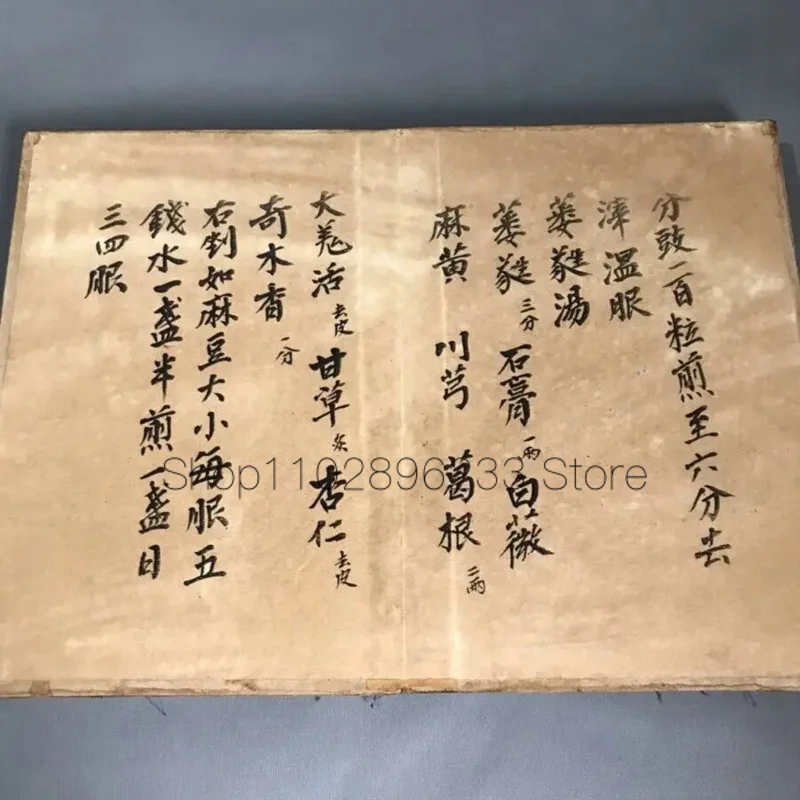 分豉一百粒煎至六分去
滓溫服
葳蕤湯
葳蕤三分石膏一兩白薇
麻黄 川芎 葛根二兩
大羗活去皮甘草炙杏仁去皮
奇木香一分
右剉如麻豆大小每服五
錢水一盞半煎一盞日
三四服
Shop1102896533 Store